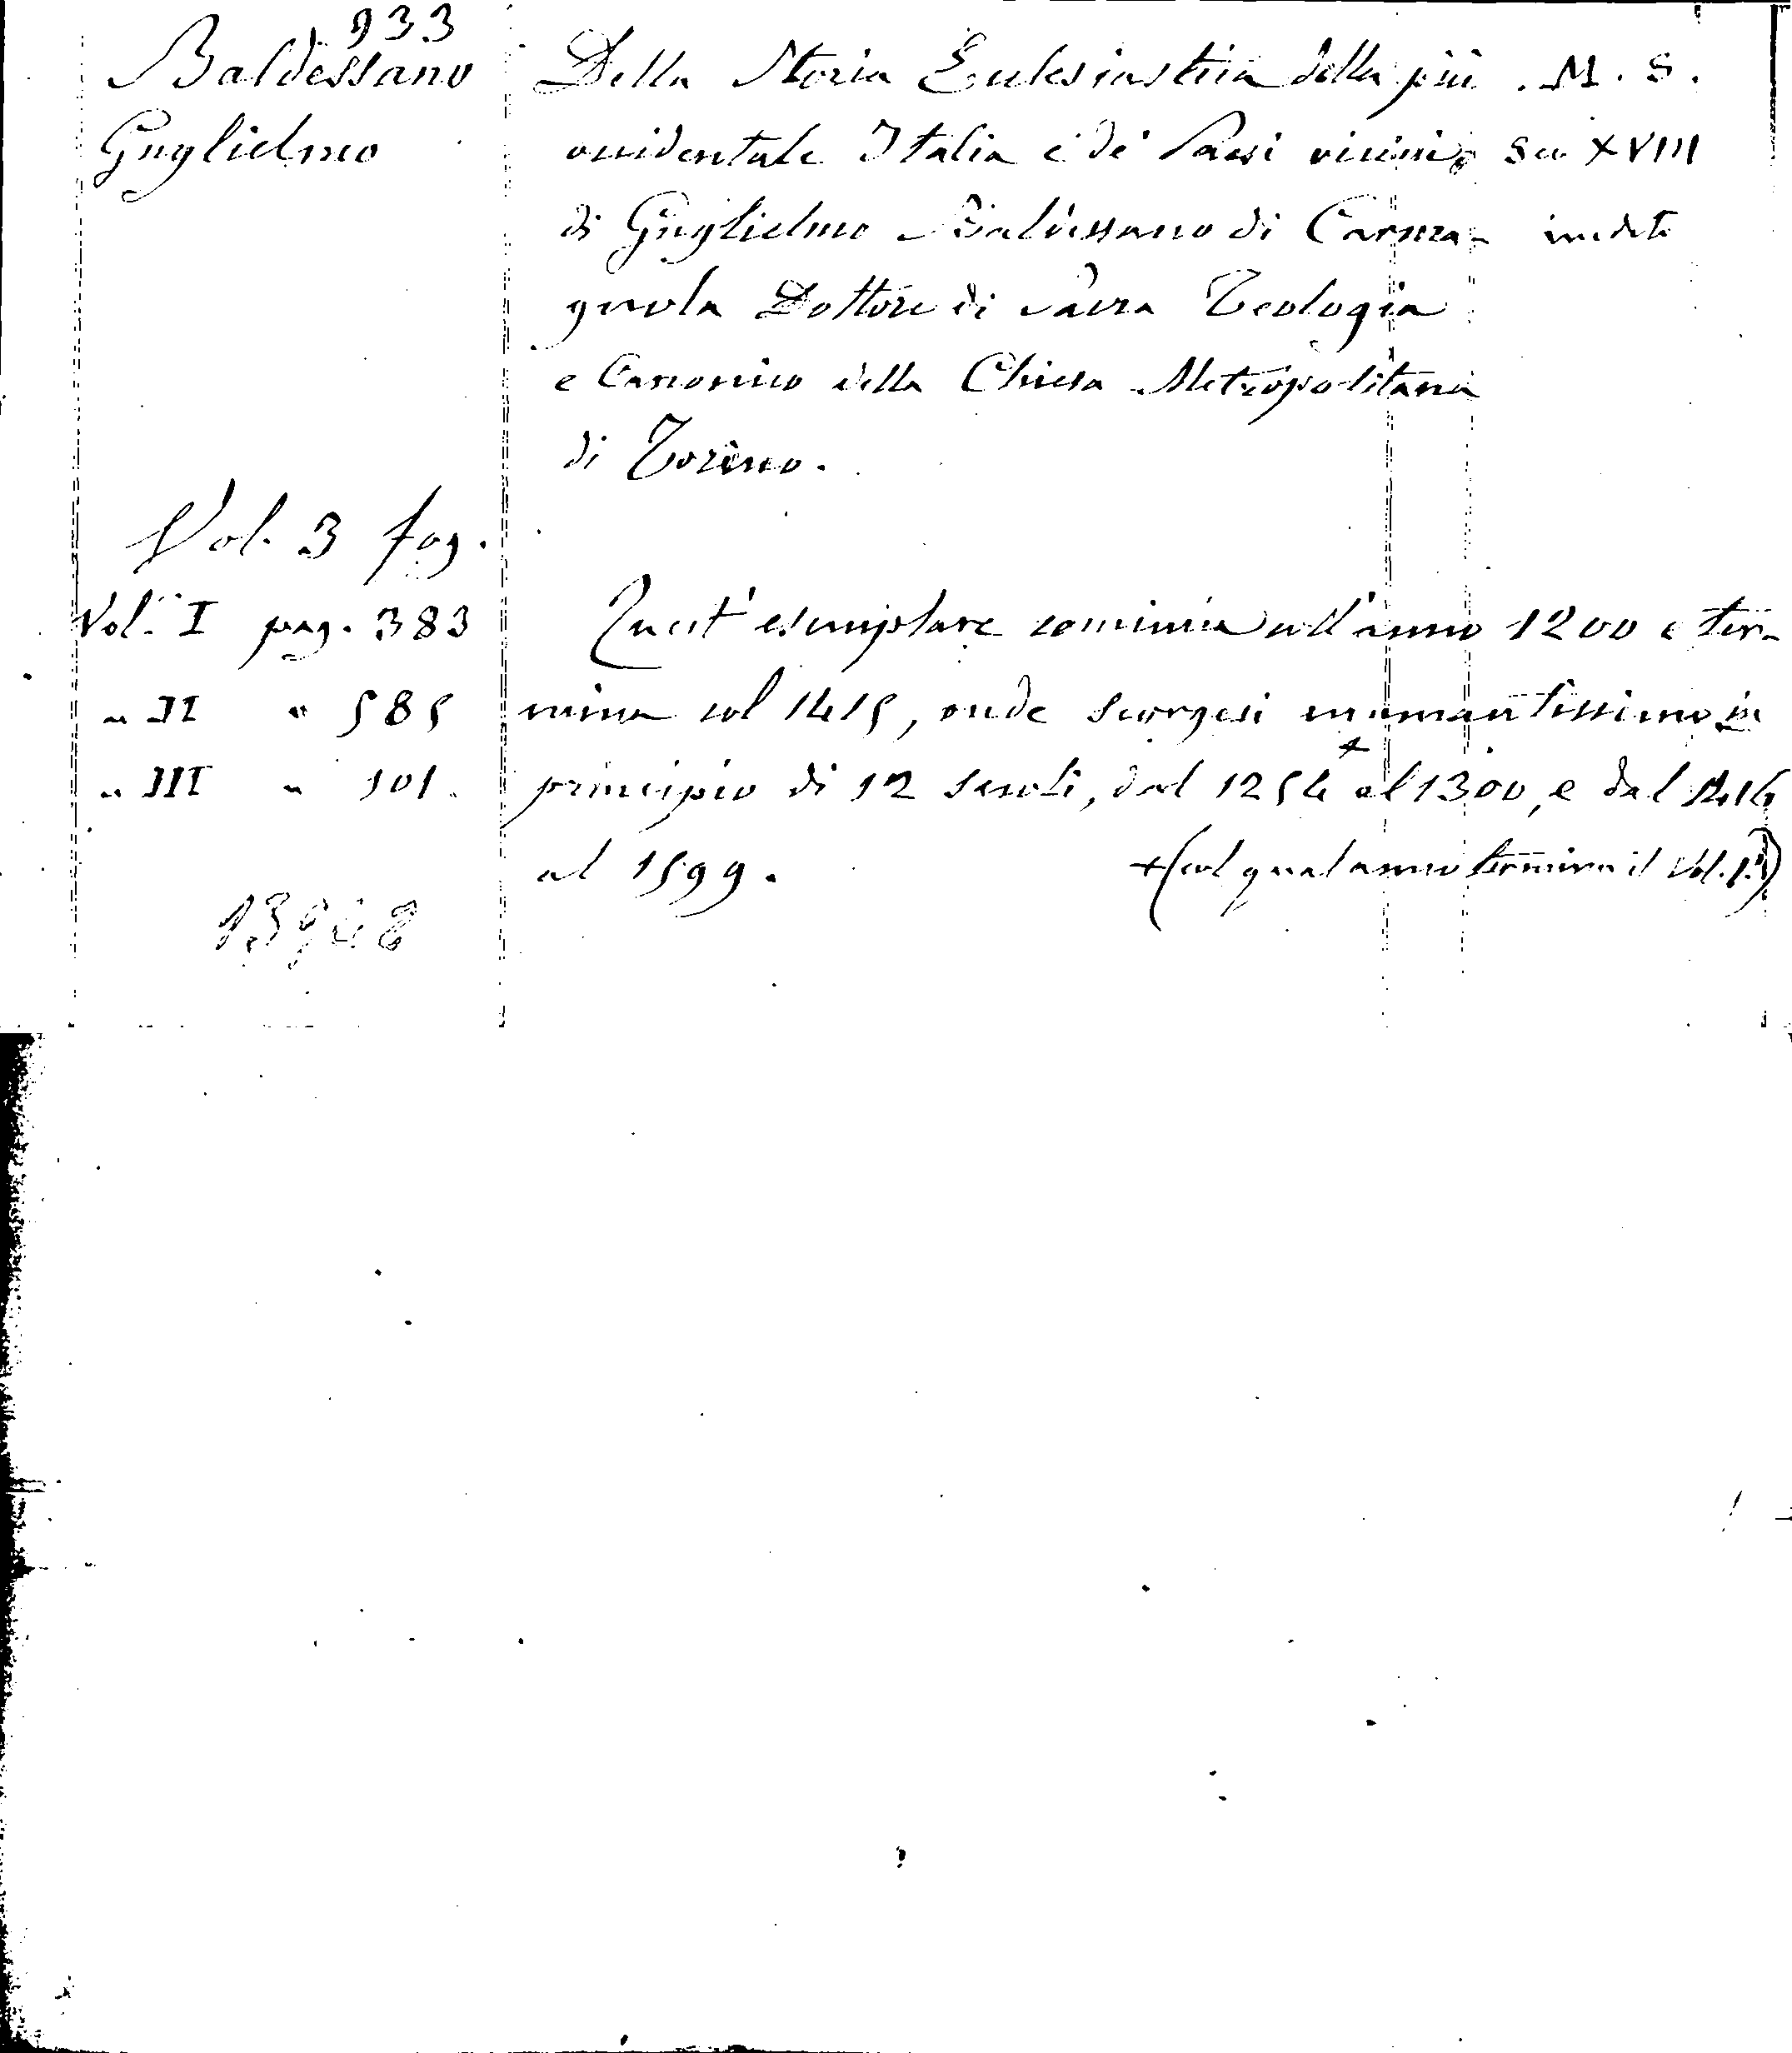 933
Baldessano
Guglielmo
Della Storia Ecclesiastica della più
occidentale Italia e de' Paesi vicini,
di Guglielmo Baldessano di Carma-
gnola Dottore di Sacra Teologia
e Canonico della Chiesa Metropolitana
di Torino.
M. S.
Sec XVIII
inedito
Vol. 3 fog.
Vol. I pag. 383
" II " 585
" III " 101.
Quest' esemplare comincia coll'anno 1200 e ter-
mina col 1415, onde scorgesi mancantissimo in
principio di 12 secoli, dal 1254 + al 1300, e dal 1414
al 1599.
+ (col qual anno termina il Vol. I.)